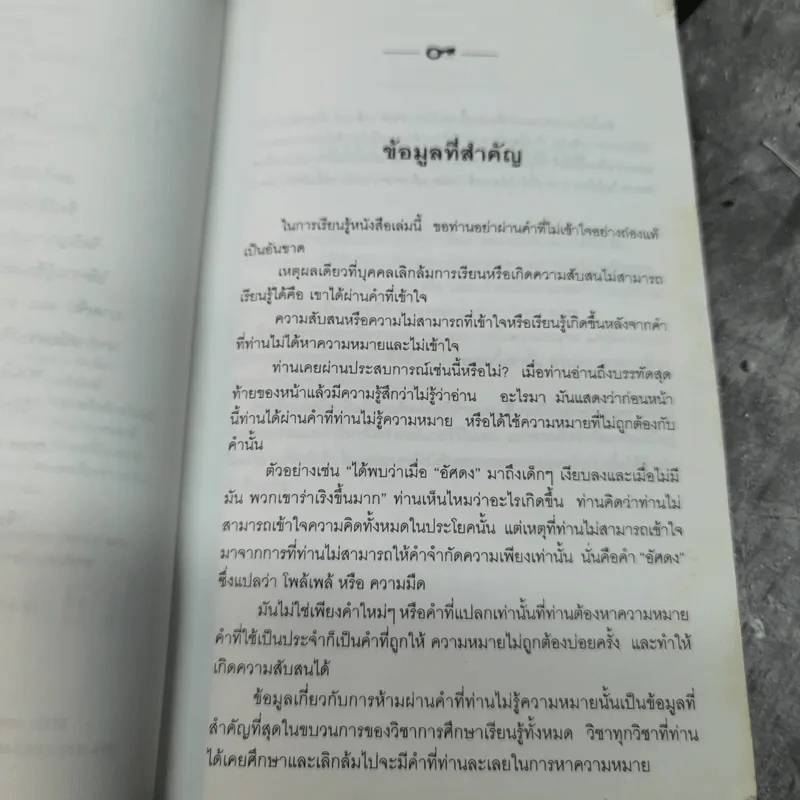 ข้อมูลที่สำคัญ
ในการเรียนรู้หนังสือเล่มนี้ ขอท่านอย่าผ่านคำที่ไม่เข้าใจอย่างถ่องแท้
เป็นอันขาด
เหตุผลเดียวที่บุคคลเลิกล้มการเรียนหรือเกิดความสับสนไม่สามารถ
เรียนรู้ได้คือ เขาได้ผ่านคำที่เข้าใจ
ความสับสนหรือความไม่สามารถที่เข้าใจหรือเรียนรู้เกิดขึ้นหลังจากคำ
ที่ท่านไม่ได้หาความหมายและไม่เข้าใจ
ท่านเคยผ่านประสบการณ์เช่นนี้หรือไม่? เมื่อท่านอ่านถึงบรรทัดสุด
ท้ายของหน้าแล้วมีความรู้สึกว่าไม่รู้ว่าอ่าน อะไรมา มันแสดงว่าก่อนหน้า
นี้ท่านได้ผ่านคำที่ท่านไม่รู้ความหมาย หรือได้ใช้ความหมายที่ไม่ถูกต้องกับ
คำนั้น
ตัวอย่างเช่น "ได้พบว่าเมื่อ "อัศดง" มาถึงเด็กๆ เงียบลงและเมื่อไม่มี
มัน พวกเขาร่าเริงขึ้นมาก" ท่านเห็นไหมว่าอะไรเกิดขึ้น ท่านคิดว่าท่านไม่
สามารถเข้าใจความคิดทั้งหมดในประโยคนั้น แต่เหตุที่ท่านไม่สามารถเข้าใจ
มาจากการที่ท่านไม่สามารถให้คำจำกัดความเพียงเท่านั้น นั่นคือคำ "อัศดง"
ซึ่งแปลว่า โพล้เพล้ หรือ ความมืด
มันไม่ใช่เพียงคำใหม่ๆ หรือคำที่แปลกเท่านั้นที่ท่านต้องหาความหมาย
คำที่ใช้เป็นประจำก็เป็นคำที่ถูกให้ ความหมายไม่ถูกต้องบ่อยครั้ง และทำให้
เกิดความสับสนได้
ข้อมูลเกี่ยวกับการห้ามผ่านคำที่ท่านไม่รู้ความหมายนั้นเป็นข้อมูลที่
สำคัญที่สุดในขบวนการของวิชาการศึกษาเรียนรู้ทั้งหมด วิชาทุกวิชาที่ท่าน
ได้เคยศึกษาและเลิกล้มไปจะมีคำที่ท่านละเลยในการหาความหมาย